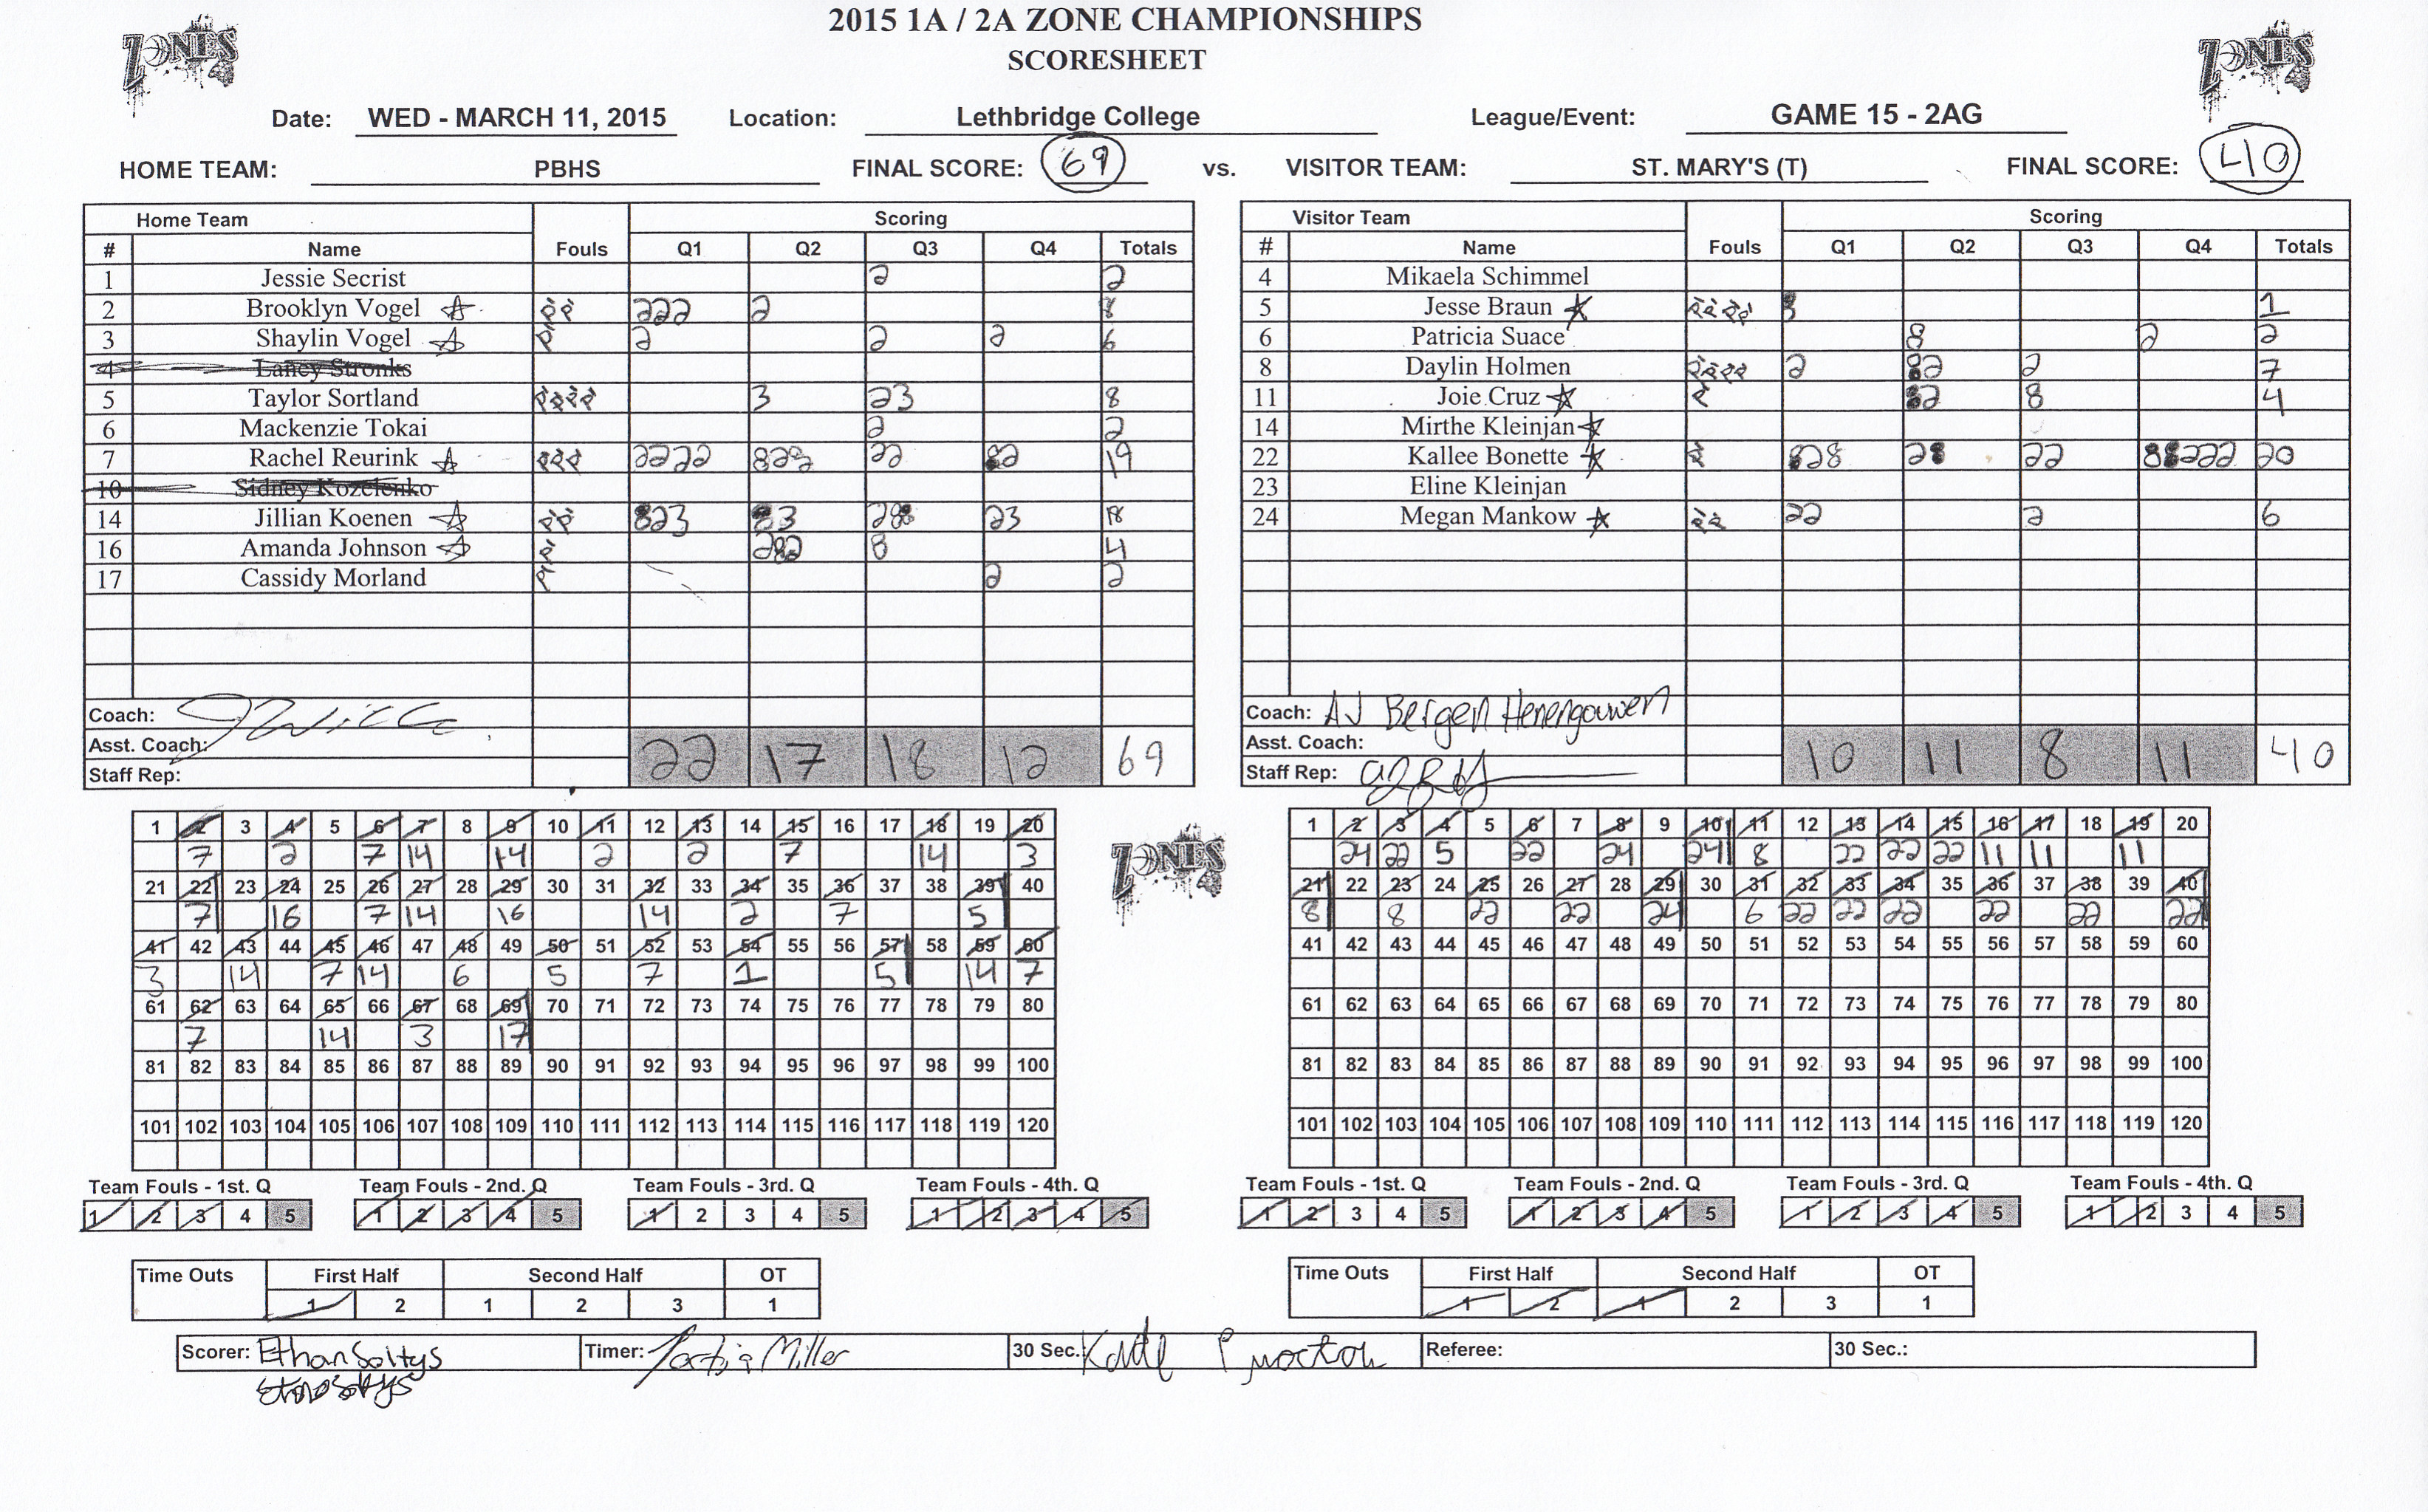 2015 1A / 2A ZONE CHAMPIONSHIPS
SCORESHEET
ZONES
ZONES
Date: WED - MARCH 11, 2015 Location: Lethbridge College League/Event: GAME 15 - 2AG
HOME TEAM: PBHS FINAL SCORE: 69 vs. VISITOR TEAM: ST. MARY'S (T) FINAL SCORE: 40
Home Team Scoring
# Name Fouls Q1 Q2 Q3 Q4 Totals
1 Jessie Secrist 2 2
2 Brooklyn Vogel 222 2 8
3 Shaylin Vogel 2 2 2 6
4 Laney Stronks
5 Taylor Sortland 3 23 8
6 Mackenzie Tokai 2 2
7 Rachel Reurink 2222 22 19
10 Sidney Kozelenko
14 Jillian Koenen 23 18
16 Amanda Johnson 4
17 Cassidy Morland 2 2
Coach:
Asst. Coach:
Staff Rep:
22 17 18 12 69
Visitor Team Scoring
# Name Fouls Q1 Q2 Q3 Q4 Totals
4 Mikaela Schimmel
5 Jesse Braun 1
6 Patricia Suace 2 2
8 Daylin Holmen 2 2 7
11 Joie Cruz 4
14 Mirthe Kleinjan
22 Kallee Bonette 22 20
23 Eline Kleinjan
24 Megan Mankow 22 2 6
Coach: AJ Bergen Henengouwen
Asst. Coach:
Staff Rep:
10 11 8 11 40
1 2 3 4 5 6 7 8 9 10 11 12 13 14 15 16 17 18 19 20
7 2 7 14 14 2 2 7 14 3
21 22 23 24 25 26 27 28 29 30 31 32 33 34 35 36 37 38 39 40
7 16 7 14 16 14 2 7 5
41 42 43 44 45 46 47 48 49 50 51 52 53 54 55 56 57 58 59 60
3 14 7 14 6 5 7 1 5 14 7
61 62 63 64 65 66 67 68 69 70 71 72 73 74 75 76 77 78 79 80
7 14 3 17
81 82 83 84 85 86 87 88 89 90 91 92 93 94 95 96 97 98 99 100
101 102 103 104 105 106 107 108 109 110 111 112 113 114 115 116 117 118 119 120
ZONES
1 2 3 4 5 6 7 8 9 10 11 12 13 14 15 16 17 18 19 20
24 22 5 22 24 24 8 22 22 22 11 11 11
21 22 23 24 25 26 27 28 29 30 31 32 33 34 35 36 37 38 39 40
8 8 22 22 24 6 22 22 22 22 22 22
41 42 43 44 45 46 47 48 49 50 51 52 53 54 55 56 57 58 59 60
61 62 63 64 65 66 67 68 69 70 71 72 73 74 75 76 77 78 79 80
81 82 83 84 85 86 87 88 89 90 91 92 93 94 95 96 97 98 99 100
101 102 103 104 105 106 107 108 109 110 111 112 113 114 115 116 117 118 119 120
Team Fouls - 1st. Q Team Fouls - 2nd. Q Team Fouls - 3rd. Q Team Fouls - 4th. Q
1 2 3 4 5 1 2 3 4 5 1 2 3 4 5 1 2 3 4 5
Team Fouls - 1st. Q Team Fouls - 2nd. Q Team Fouls - 3rd. Q Team Fouls - 4th. Q
1 2 3 4 5 1 2 3 4 5 1 2 3 4 5 1 2 3 4 5
Time Outs First Half Second Half OT
1 2 1 2 3 1
Time Outs First Half Second Half OT
1 2 1 2 3 1
Scorer: Ethan Soltys Timer: Miller 30 Sec.: Referee: 30 Sec.: